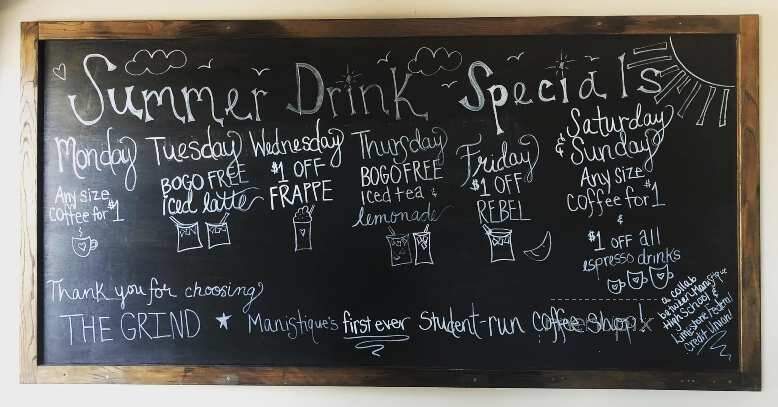 Summer Drink Specials
Monday
Any size
coffee for $1
Tuesday
BOGO FREE
iced latte
Wednesday
$1 OFF
FRAPPE
Thursday
BOGO FREE
iced tea &
lemonade
Friday
$1 OFF
REBEL
Saturday
& Sunday
Any size
coffee for $1
&
$1 OFF all
espresso drinks
Thank you for choosing
THE GRIND ★ Manistique's first ever Student-run Coffee Shop!
a collab
between Manistique
High School &
Limestone Federal
Credit Union!